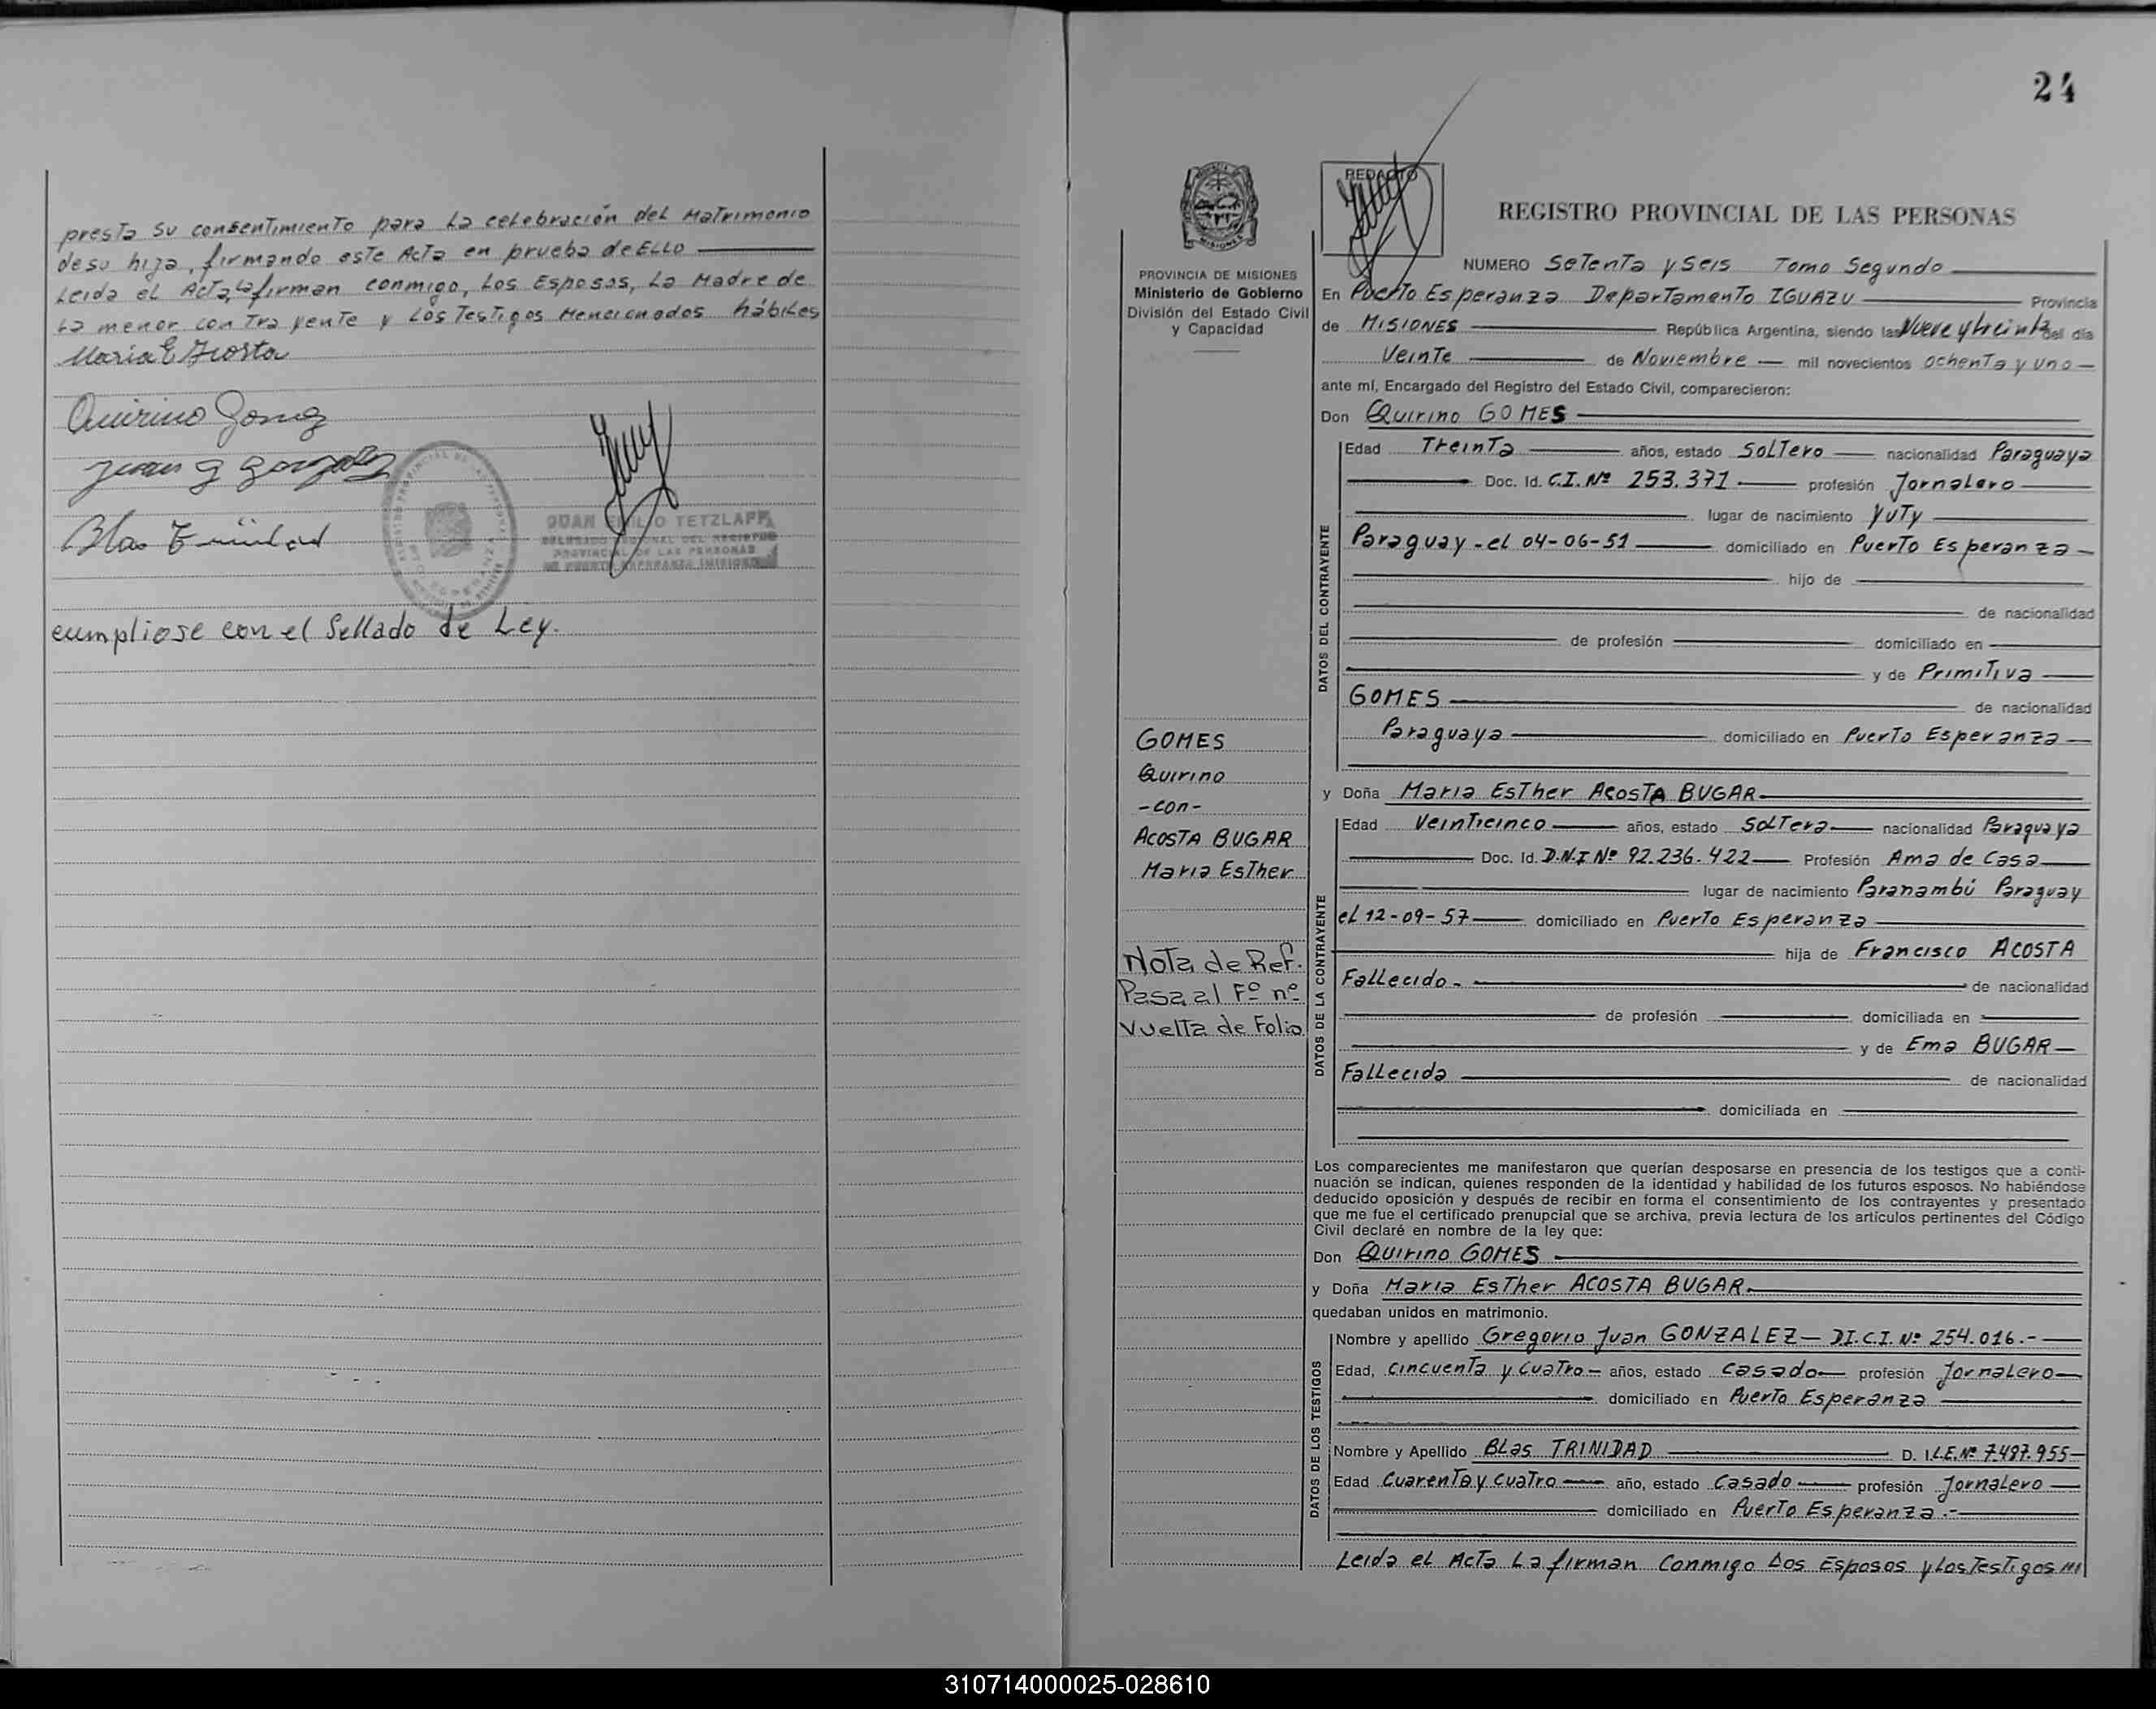 presta su consentimiento para la celebración del Matrimonio
de su hija, firmando este Acta en prueba de ELLO
Leida el Acta, la firman conmigo, Los Esposos, La Madre de
La menor contrayente y Los Testigos Mencionados hábiles
Maria E Acosta
Quirino Gomez
Juan G Gonzalez
Blas Trinidad
JUAN EMILIO TETZLAFF
DELEGADO SECCIONAL DEL REGISTRO
PROVINCIAL DE LAS PERSONAS
DE PUERTO ESPERANZA (MISIONES)
cumpliose con el Sellado de Ley.
24
REDACTO
REGISTRO PROVINCIAL DE LAS PERSONAS
MISIONES
PROVINCIA DE MISIONES
Ministerio de Gobierno
División del Estado Civil
y Capacidad
GOMES
Quirino
-con-
ACOSTA BUGAR
Maria Esther
Nota de Ref.
Pasa al Fº nº
Vuelta de Folio
NUMERO Setenta y Seis Tomo Segundo
En Puerto Esperanza Departamento IGUAZU Provincia
de MISIONES República Argentina, siendo las Nueve y treinta del día
Veinte de Noviembre mil novecientos ochenta y uno
ante mí, Encargado del Registro del Estado Civil, comparecieron:
Don Quirino GOMES
DATOS DEL CONTRAYENTE
Edad Treinta años, estado Soltero nacionalidad Paraguaya
Doc. Id. C.I. Nº 253.371 profesión Jornalero
lugar de nacimiento Yuty
Paraguay - el 04-06-51 domiciliado en Puerto Esperanza
hijo de
de nacionalidad
de profesión domiciliado en
y de Primitiva
GOMES de nacionalidad
Paraguaya domiciliado en Puerto Esperanza
y Doña Maria Esther Acosta BUGAR
DATOS DE LA CONTRAYENTE
Edad Veinticinco años, estado Soltera nacionalidad Paraguaya
Doc. Id. D.N.I Nº 92.236.422 Profesión Ama de Casa
lugar de nacimiento Paranambú Paraguay
el 12-09-57 domiciliado en Puerto Esperanza
hija de Francisco ACOSTA
Fallecido. de nacionalidad
de profesión domiciliada en
y de Ema BUGAR
Fallecida de nacionalidad
domiciliada en
Los comparecientes me manifestaron que querían desposarse en presencia de los testigos que a conti-
nuación se indican, quienes responden de la identidad y habilidad de los futuros esposos. No habiéndose
deducido oposición y después de recibir en forma el consentimiento de los contrayentes y presentado
que me fue el certificado prenupcial que se archiva, previa lectura de los artículos pertinentes del Código
Civil declaré en nombre de la ley que:
Don Quirino GOMES
y Doña Maria Esther ACOSTA BUGAR.
quedaban unidos en matrimonio.
DATOS DE LOS TESTIGOS
Nombre y apellido Gregorio Juan GONZALEZ - D.I.C.I. Nº 254.016.-
Edad, cincuenta y cuatro años, estado casado profesión Jornalero
domiciliado en Puerto Esperanza
Nombre y Apellido Blas TRINIDAD D. I.L.E. Nº 7.487.955
Edad Cuarenta y cuatro año, estado Casado profesión Jornalero
domiciliado en Puerto Esperanza.-
Leida el Acta La firman Conmigo Los Esposos y Los Testigos ///
310714000025-028610